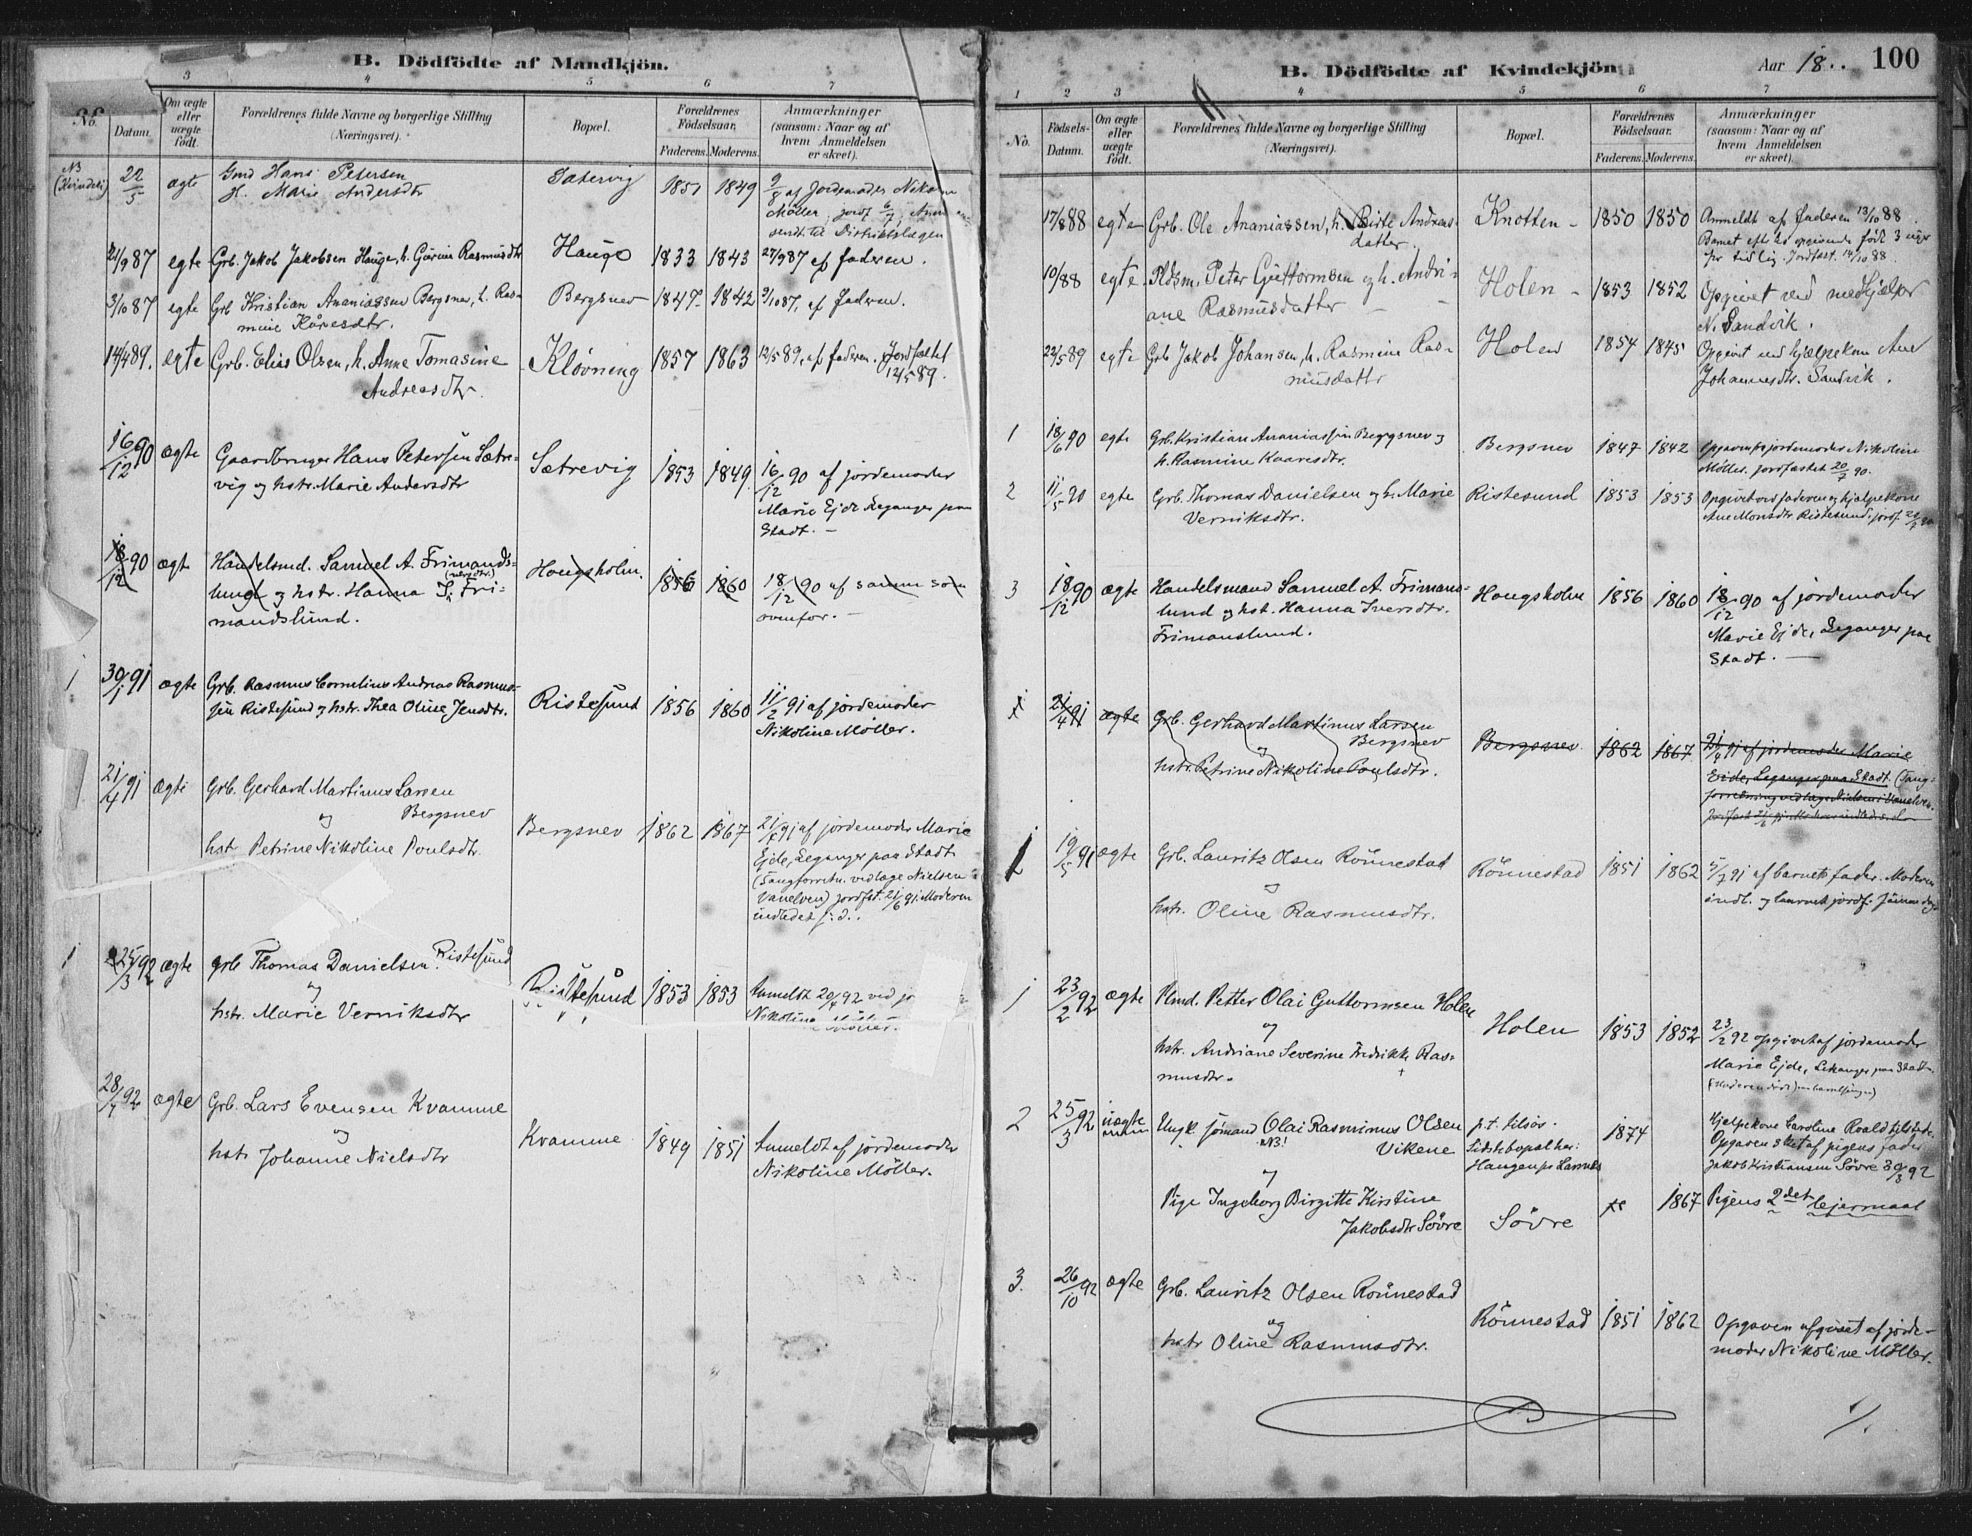 B. Dödfödte af Mandkjön.
3 4 5 6 7
No.
Datum.
Om ægte eller uægte födt.
Forældrenes fulde Navne og borgerlige Stilling
(Næringsvei).
Bopæl.
Forældrenes Födselsaar.
Faderens. Moderens.
Anmærkninger
(saasom: Naar og af
hvem Anmeldelsen
er skeet).
NB (Kvindek) 22/5 ægte Gmd Hans Petersen Sætervig 1851 1849 9/8 af Jordemoder Nikoline
H. Marie Andersdtr Möller, jordf. 6/7,
sendt til Distriktslægen
21/9 87 egte Grb. Jakob Jakobsen Hauge, h. Gurine Rasmusdtr Hauge 1833 1843 27/9 87 af faderen.
3/10 87 egte Grb Kristian Ananiassen Bergsnev, h. Ras- Bergsnev 1847 1842 9/10 87, af faderen.
mine Kåresdtr.
14/4 89. egte Grb. Elias Olsen, h. Anne Tomasine Kløvning 1857 1863 12/5 89, af faderen. Jordfæstet
Andreasdtr. 12/5 89.
16/12 90 ægte Gaardbruger Hans Petersen Sætre- Sætrevig 1853 1849 16/12 90 af jordemoder
vig og hstr. Marie Andersdtr Marie Ejde Leganger paa
Stadt. —
18/12 90 ægt Handelsmd. Samuel A. Frimands- Hougsholm. 1856 1860 18/12 90 af samme som
lund og hstr. Hanna I. Fri- ovenfor. —
(versdtr.)
mandslund.
1 30/1 91 ægte Grb. Rasmus Cornelius Andreas Rasmus- Ristesund 1856 1860 11/2 91 af jordemoder
sen Ristesund og hstr. Thea Oline Jensdtr. Nikoline Møller.
21/4 91 ægte Grb. Gerhard Martinus Larsen
og Bergsnev
hstr Petrine Nikoline Poulsdtr. Bergsnev 1862 1867 21/4 91 af jordemoder Marie
Ejde, Leganger paa Stadt
(Tangforretn. ved læge Nielsen
Vanelven) jordfst. 21/6 91. Moderen
indledet s. d.
1 25/3 92 ægte grb Thomas Danielsen Ristesund
og
hstr. Marie Verniksdtr Ristesund 1853 1853 Anmeldt 20/4 92 ved jo
Nikoline Möller.
28/7 92 ægte Grb. Lars Evensen Kvamme
og
hstr Johanne Nielsdtr Kvamme 1849 1851 Anmeldt af jordemoder
Nikoline Möller.
B. Dödfödte af Kvindekjön
Aar 18.. 100
1 2 3 4 5 6 7
No.
Födsels-Datum.
Om ægte eller uægte födt.
Forældrenes fulde Navne og borgerlige Stilling
(Næringsvei).
Bopæl.
Forældrenes Födselsaar.
Faderens. Moderens.
Anmærkninger
(saasom: Naar og af
hvem Anmeldelsen
er skeet).
17/8 88 egte Grb. Ole Ananiassen, h. Birte Andreas- Knotten - 1850 1850 Anmeldt af Faderen 13/10 88
datter. Barnet efter hs opgivende født 3 uger
for tidlig. Jordfæst. 14/10 88.
10/ 88 egte Pldsm. Peter Guttormsen og h. Andri- Holen - 1853 1852 Opgivet ved medhjælper
ane Rasmusdatter — N. Sandvik.
22/5 89 egte Grb Jakob Johansen, h. Rasmine Ras- Holen 1854 1845 Opgivet ved hjælpekone Ane
musdattr Johannesdtr. Sandvik.
1 18/6 90 egte Grb. Kristian Ananiassen Bergsnev og Bergsnev 1847 1842 jordemoder Nikoline
h. Rasmine Kaaresdtr. Möller. jordfæstet 20/7 90.
2 11/5 90 egte Grb. Thomas Danielsen og h. Marie Ristesund 1853 1853 Opgivet ved faderen og hjelpekone
Verniksdtr. Ane Monsdtr Ristesund. jordf.
3 18/12 90 ægte Handelsmand Samuel A. Frimands- Hougsholm 1856 1860 18/12 90 af jordemoder
lund og hst. Hanna Iversdtr. Marie Ejde, Leganger paa
Frimanslund. Stadt. —
1 21/4 91 ægte Grb. Gerhard Martinus Larsen
og Bergsnev
hstr. Petrine Nikoline Poulsdtr. Bergsnev 1862 1867 21/4 91 af jordemoder Marie
Eide, Leganger paa Stadt. (Tang-
forretning ved læge Nielsen i Vanelven.
2 19/5 91 ægte Grb. Lauritz Olsen Rönnestad Rönnestad 1851 1862 5/7 91 af barnets fader. Moderen
og indl. og barnet jordf. samme dag.
hstr. Oline Rasmusdtr.
1 23/2 92 ægte Plmd. Petter Olai Guttormsen Holen
og
hstr. Andriane Severine Fredrikke Ras-
musdtr. Holen 1853 1852 23/2 92 opgivet af jordemoder
Marie Ejde, Lekanger paa Stadt.
(Moderen död) i barselsengen)
2 25/3 92 uægte Ungk. sömand Olai Rasminus Olsen p.t. tilsös. 1874 Hjelpekone Caroline Roald tilstede.
NB! Vikene Sidste bopæl her: Opgaven sket af pigens fader
og Haugen Jakob Kristiansen Sövre 30/3 92
Pige Ingeborg Birgitte Kirstine 1867 Pigens 2det lejermaal
Jakobsdtr Sövre Sövre
3. 26/10 92 ægte Grb. Lauritz Olsen Rönnestad
og Rönnestad 1851 1862 Opgaven afgivet af jorde-
hstr Oline Rasmusdtr. moder Nikoline Möller.